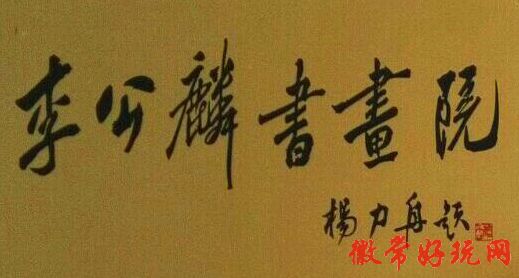 李公麟书畫院
楊力舟题
徽常好玩网